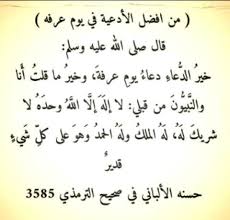 ( من افضل الأدعية في يوم عرفه )
قال صلى الله عليه وسلم:
خيرُ الدُّعاءِ دعاءُ يومِ عرفةَ، وخيرُ ما قلتُ أنا
والنَّبيُّونَ من قبلي: لا إلهَ إلَّا اللَّهُ وحدَهُ لا
شريكَ لَهُ، لَهُ الملكُ ولَهُ الحمدُ وَهوَ على كلِّ شيءٍ
قديرٌ
حسنه الألباني في صحيح الترمذي 3585